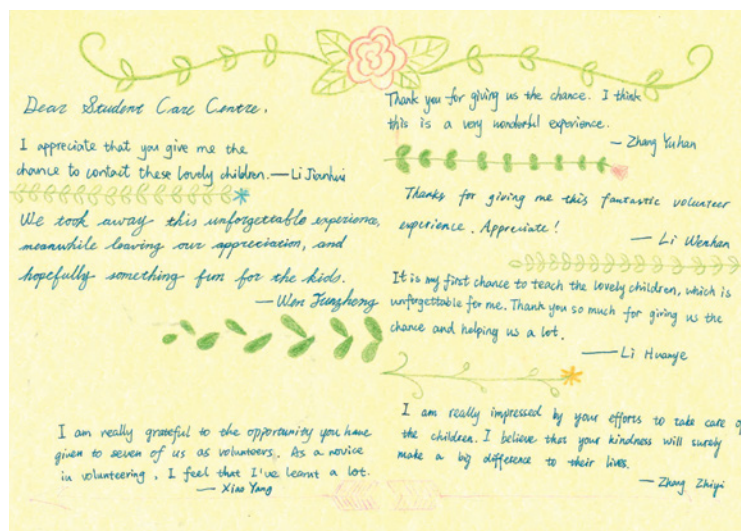 Dear Student Care Centre,
I appreciate that you give me the
chance to contact these lovely children.—Li Jianhui
We took away this unforgettable experience,
meanwhile leaving our appreciation, and
hopefully something fun for the kids.
—Wen Junzheng
I am really grateful to the opportunity you have
given to seven of us as volunteers. As a novice
in volunteering, I feel that I've learnt a lot.
— Xiao Yang
Thank you for giving us the chance. I think
this is a very wonderful experience.
— Zhang Yuhan
Thanks for giving me this fantastic volunteer
experience. Appreciate!
— Li Wenhan
It is my first chance to teach the lovely children, which is
unforgettable for me. Thank you so much for giving us the
chance and helping us a lot.
— Li Huanye
I am really impressed by your efforts to take care of
the children. I believe that your kindness will surely
make a big difference to their lives.
— Zhang Zhiyi